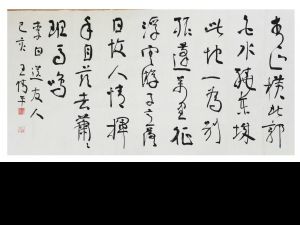 青山橫北郭
白水繞東城
此地一為別
孤蓬萬里征
浮雲游子意落
日故人情揮
手自茲去蕭〻
班馬鳴
李白送友人
己亥 王偉平